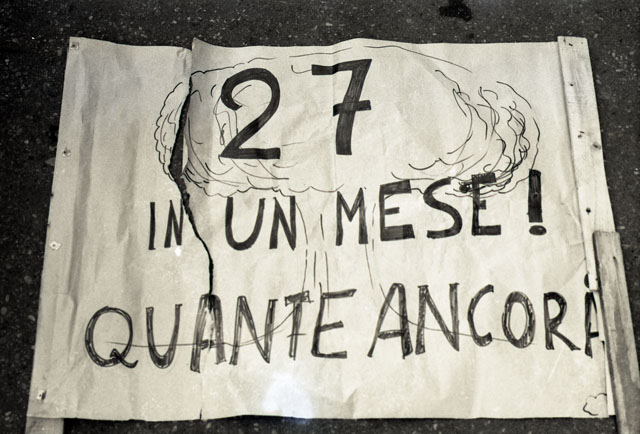 27
IN UN MESE!
QUANTE ANCORA